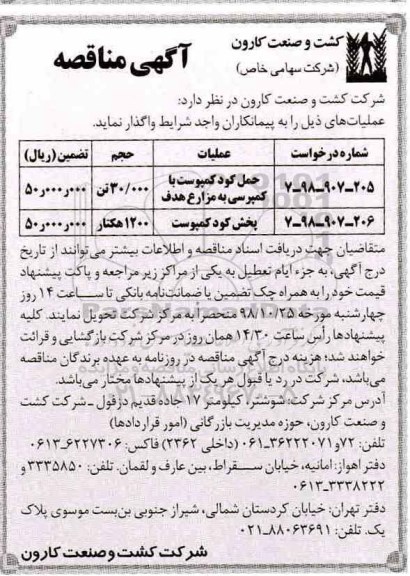 کشت و صنعت کارون
(شرکت سهامی خاص)
آگهی مناقصه
شرکت کشت و صنعت کارون در نظر دارد:
عملیات‌های ذیل را به پیمانکاران واجد شرایط واگذار نماید.
شماره درخواست عملیات حجم تضمین (ریال)
۷-۹۸-۹۰۷-۲۰۵ حمل کود کمپوست با کمپرسی به مزارع هدف ۳۰/۰۰۰ تن ۵۰٫۰۰۰٫۰۰۰
۷-۹۸-۹۰۷-۲۰۶ پخش کود کمپوست ۱۲۰۰ هکتار ۵۰٫۰۰۰٫۰۰۰
متقاضیان جهت دریافت اسناد مناقصه و اطلاعات بیشتر می‌توانند از تاریخ
درج آگهی، به جزء ایام تعطیل به یکی از مراکز زیر مراجعه و پاکت پیشنهاد
قیمت خود را به همراه چک تضمین یا ضمانت‌نامه بانکی تا ساعت ۱۴ روز
چهارشنبه مورخه ۹۸/۱۰/۲۵ منحصرا به مرکز شرکت تحویل نمایند. کلیه
پیشنهادها رأس ساعت ۱۴/۳۰ همان روز در مرکز شرکت بازگشایی و قرائت
خواهند شد؛ هزینه درج آگهی مناقصه در روزنامه به عهده برندگان مناقصه
می‌باشد، شرکت در رد یا قبول هر یک از پیشنهادها مختار می‌باشد.
آدرس مرکز شرکت: شوشتر، کیلومتر ۱۷ جاده قدیم دزفول ـ شرکت کشت
و صنعت کارون، حوزه مدیریت بازرگانی (امور قراردادها)
تلفن: ۷۲و۳۶۲۲۲۰۷۱-۰۶۱ (داخلی ۲۳۶۲) فاکس: ۶۲۲۷۳۰۶-۰۶۱۳
دفتر اهواز: امانیه، خیابان سقراط، بین عارف و لقمان. تلفن: ۳۳۳۵۸۵۰ و
۳۳۳۸۲۲۲-۰۶۱۳
دفتر تهران: خیابان کردستان شمالی، شیراز جنوبی بن‌بست موسوی پلاک
یک. تلفن: ۸۸۰۶۳۶۹۱-۰۲۱
شرکت کشت و صنعت کارون